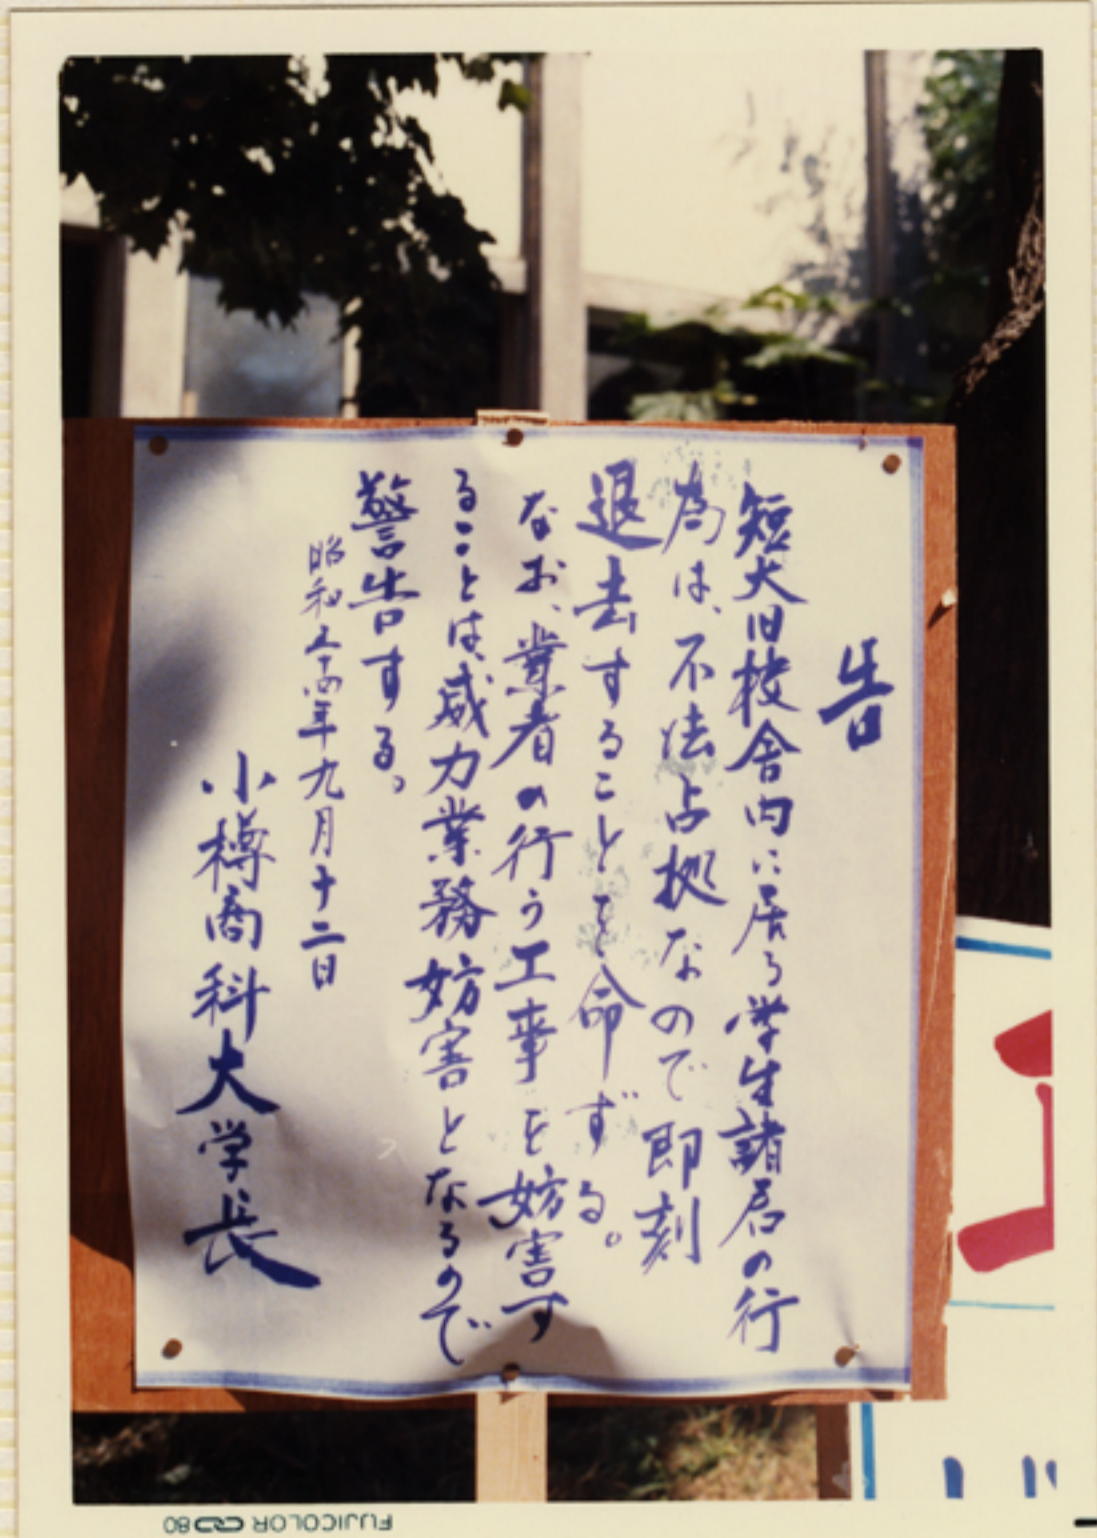 告
短大旧校舎内に居る学生諸君の行
為は、不法占拠なので即刻
退去することを命ずる。
なお、業者の行う工事を妨害す
ることは、威力業務妨害となるので
警告する。
昭和五十四年九月十二日
小樽商科大学長
FUJICOLOR 80